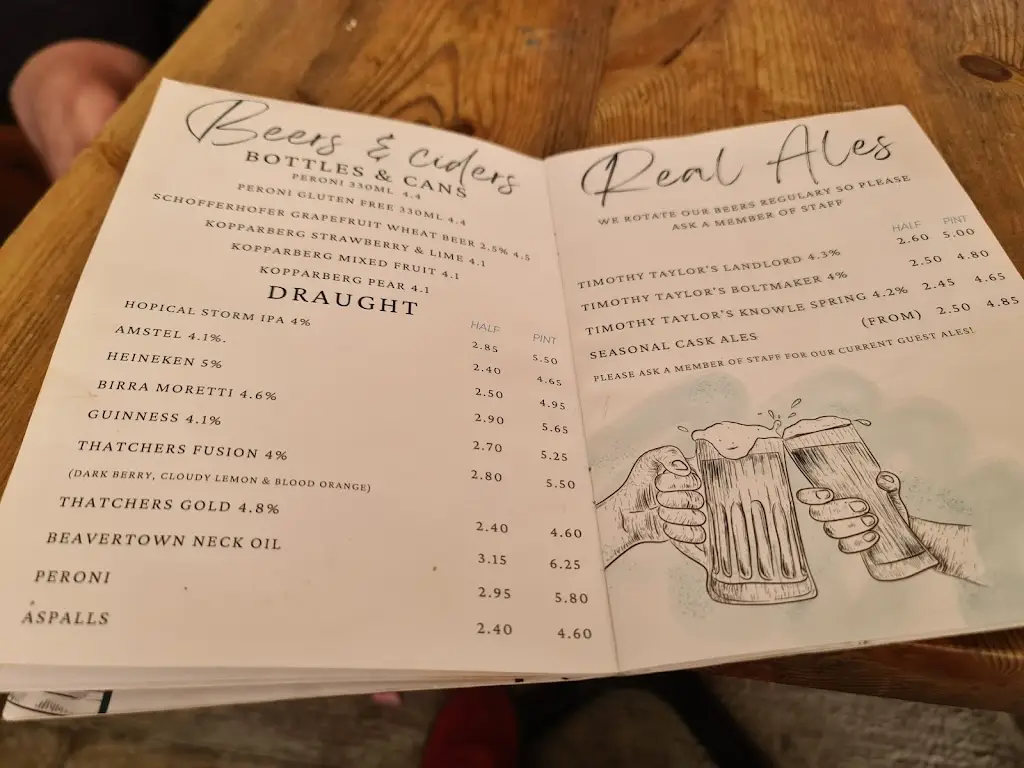 Beers & ciders
BOTTLES & CANS
PERONI 330ML 4.4
PERONI GLUTEN FREE 330ML 4.4
SCHOFFERHOFER GRAPEFRUIT WHEAT BEER 2.5% 4.5
KOPPARBERG STRAWBERRY & LIME 4.1
KOPPARBERG MIXED FRUIT 4.1
KOPPARBERG PEAR 4.1
DRAUGHT
HALF PINT
HOPICAL STORM IPA 4% 2.85 5.50
AMSTEL 4.1%. 2.40 4.65
HEINEKEN 5% 2.50 4.95
BIRRA MORETTI 4.6% 2.90 5.65
GUINNESS 4.1% 2.70 5.25
THATCHERS FUSION 4% 2.80 5.50
(DARK BERRY, CLOUDY LEMON & BLOOD ORANGE)
THATCHERS GOLD 4.8% 2.40 4.60
BEAVERTOWN NECK OIL 3.15 6.25
PERONI 2.95 5.80
ASPALLS 2.40 4.60
Real Ales
WE ROTATE OUR BEERS REGULARY SO PLEASE
ASK A MEMBER OF STAFF
HALF PINT
TIMOTHY TAYLOR'S LANDLORD 4.3% 2.60 5.00
TIMOTHY TAYLOR'S BOLTMAKER 4% 2.50 4.80
TIMOTHY TAYLOR'S KNOWLE SPRING 4.2% 2.45 4.65
SEASONAL CASK ALES (FROM) 2.50 4.85
PLEASE ASK A MEMBER OF STAFF FOR OUR CURRENT GUEST ALES!